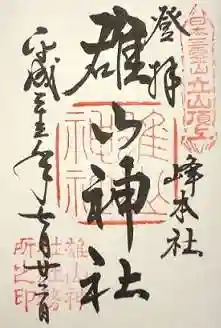 日本霊山立山頂上
登拝
峰本社
雄山神社
雄山神社
平成二十三年七月廿二日
雄山神
社社務
所之印